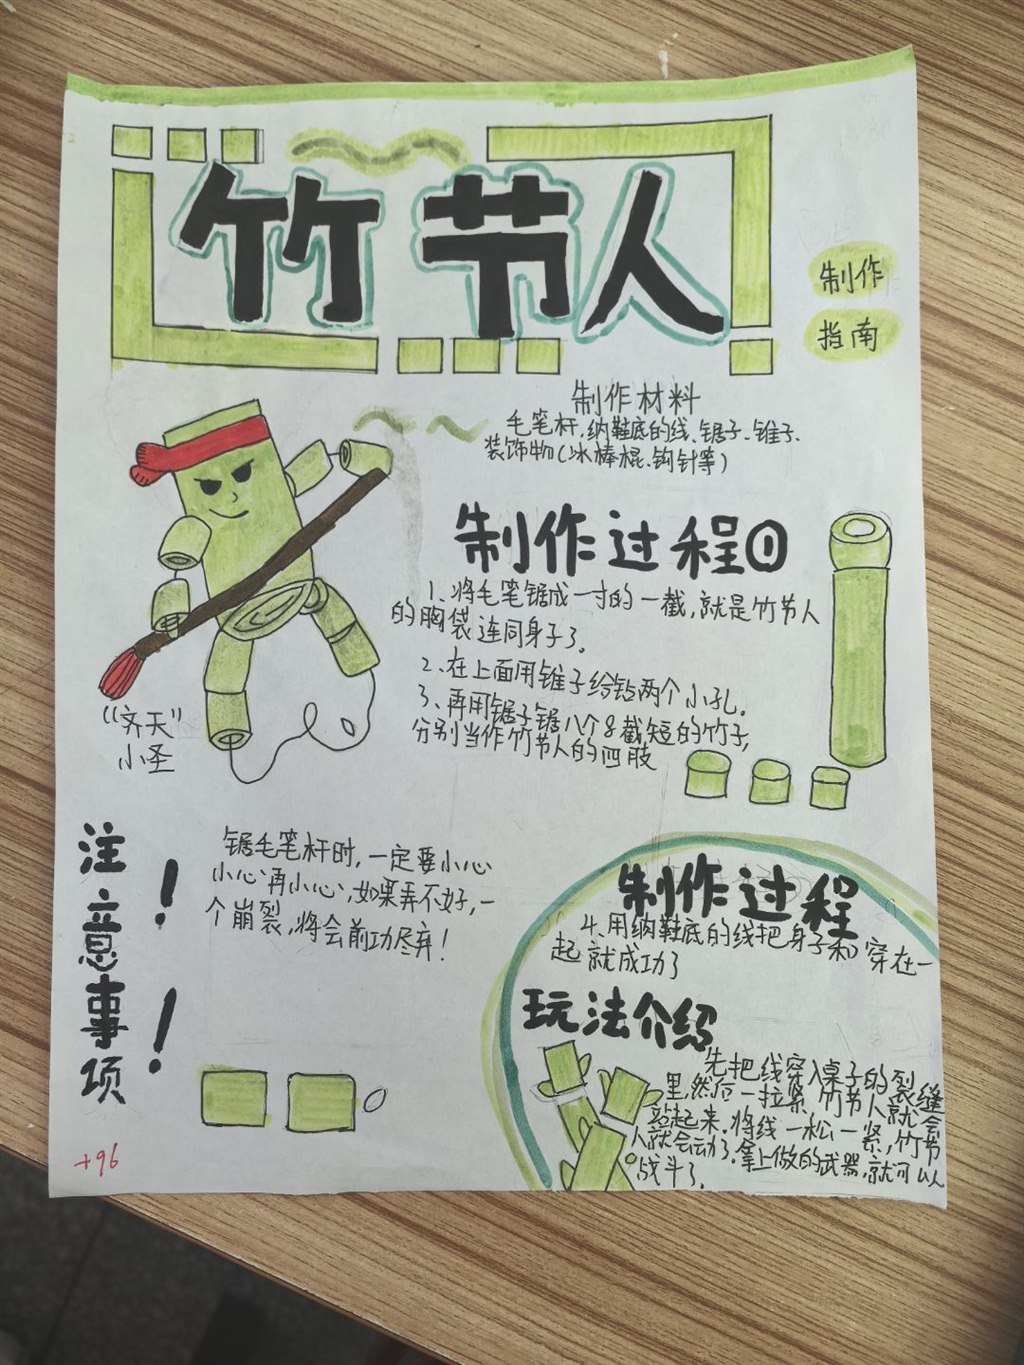 竹节人
制作
指南
制作材料
毛笔杆、纳鞋底的线、锯子、锥子、
装饰物(冰棒棍、钩针等)
制作过程①
1、将毛笔锯成一寸的一截,就是竹节人
的胸袋连同身子了。
2、在上面用锥子给钻两个小孔。
3、再用锯子锯八个8截短的竹子,
分别当作竹节人的四肢
“齐天”
小圣
注意事项!!
锯毛笔杆时,一定要小心
小心、再小心,如果弄不好,一
个崩裂,将会前功尽弃!
制作过程
4、用纳鞋底的线把身子和穿在一
起就成功了
玩法介绍
先把线穿入桌子的裂缝
里,然后一拉紧,竹节人就会
站起来,将线一松一紧,竹节
人就会运动了。拿上做的武器,就可以
战斗了。
+96